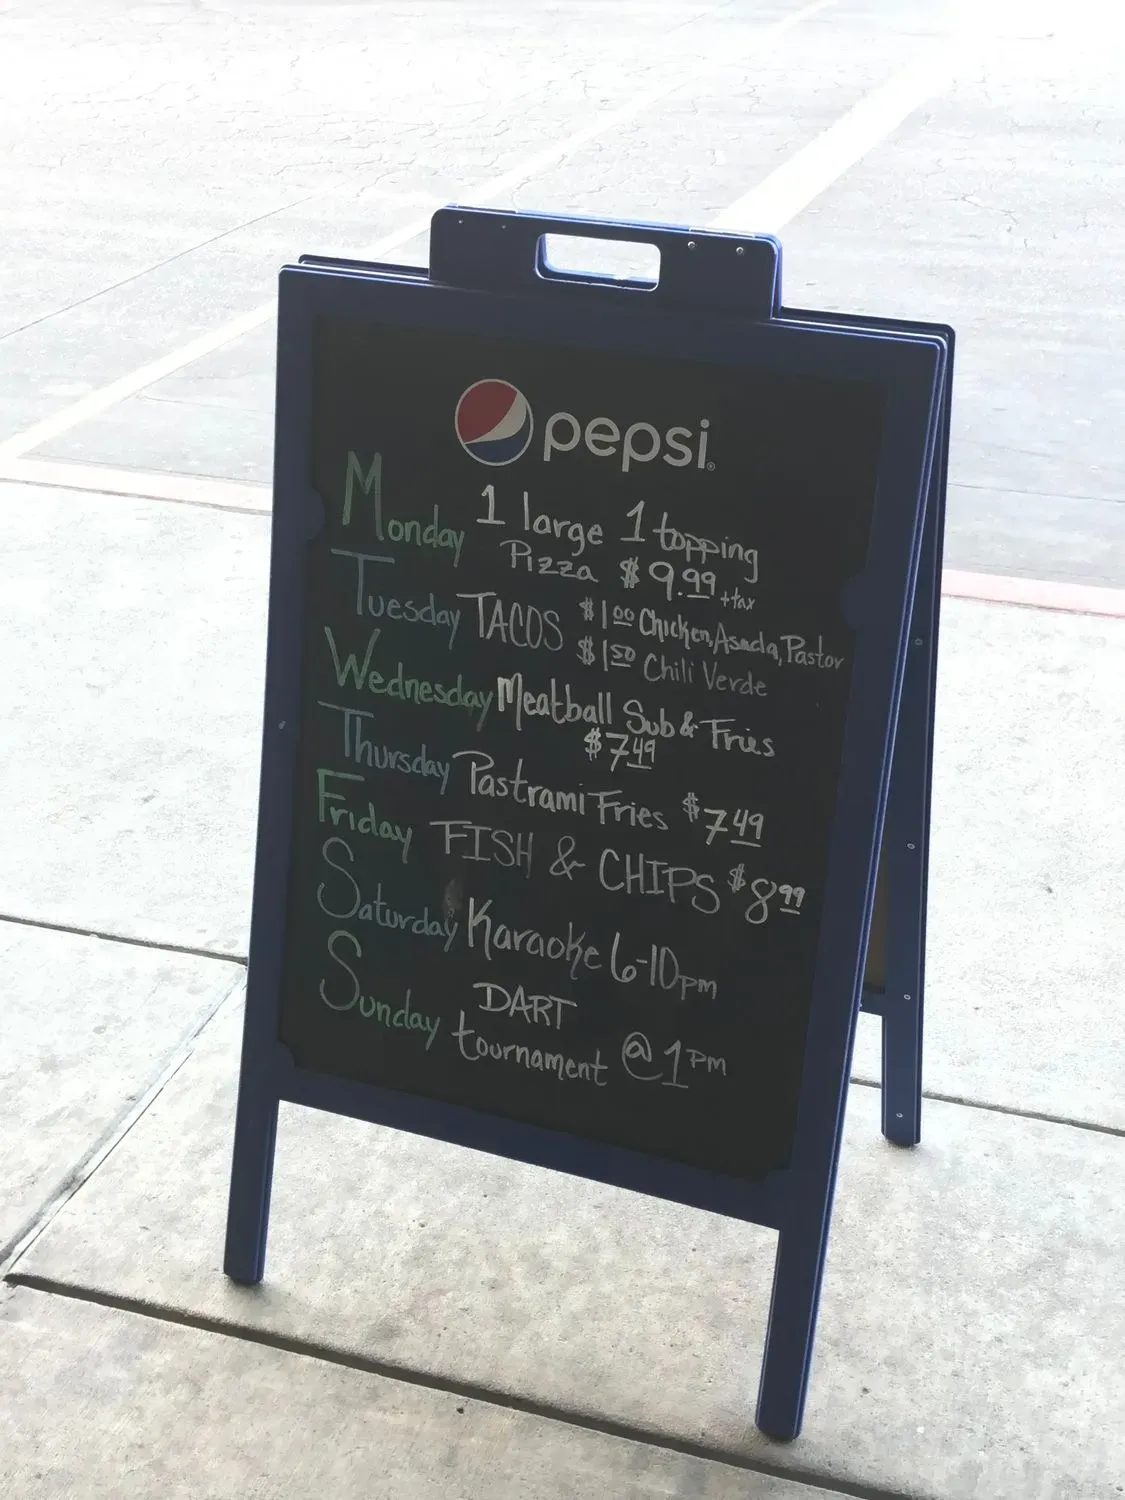 pepsi
Monday 1 large 1 topping
Pizza $9.99 +tax
Tuesday TACOS $1.00 Chicken, Asada, Pastor
$1.50 Chili Verde
Wednesday Meatball Sub & Fries
$7.49
Thursday Pastrami Fries $7.49
Friday FISH & CHIPS $8.99
Saturday Karaoke 6-10pm
Sunday DART
tournament @ 1pm